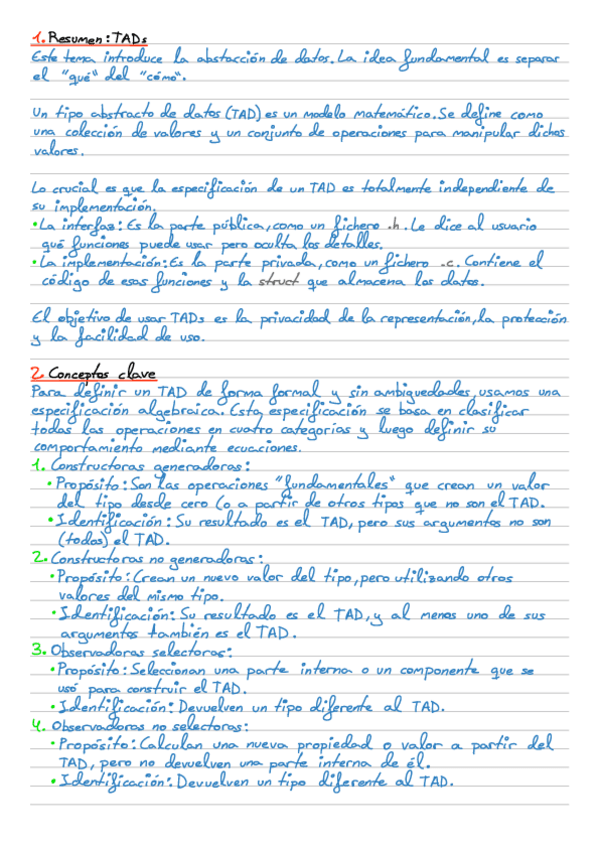 1. Resumen: TADs
Este tema introduce la abstacción de datos. La idea fundamental es separar
el "qué" del "cómo".
Un tipo abstracto de datos (TAD) es un modelo matemático. Se define como
una colección de valores y un conjunto de operaciones para manipular dichos
valores.
Lo crucial es que la especificación de un TAD es totalmente independiente de
su implementación.
• La interfaz: Es la parte pública, como un fichero .h. Le dice al usuario
qué funciones puede usar pero oculta los detalles.
• La implementación: Es la parte privada, como un fichero .c. Contiene el
código de esas funciones y la struct que almacena los datos.
El objetivo de usar TADs es la privacidad de la representación, la protección
y la facilidad de uso.
2. Conceptos clave
Para definir un TAD de forma formal y sin ambiguedades, usamos una
especificación algebraica. Esta especificación se basa en clasificar
todas las operaciones en cuatro categorías y luego definir su
comportamiento mediante ecuaciones.
1. Constructoras generadoras:
• Propósito: Son las operaciones "fundamentales" que crean un valor
del tipo desde cero (o a partir de otros tipos que no son el TAD.
• Identificación: Su resultado es el TAD, pero sus argumentos no son
(todos) el TAD.
2. Constructoras no generadoras:
• Propósito: Crean un nuevo valor del tipo, pero utilizando otros
valores del mismo tipo.
• Identificación: Su resultado es el TAD, y al menos uno de sus
argumentos también es el TAD.
3. Observadoras selectoras:
• Propósito: Seleccionan una parte interna o un componente que se
usó para construir el TAD.
• Identificación: Devuelven un tipo diferente al TAD.
4. Observadoras no selectoras:
• Propósito: Calculan una nueva propiedad o valor a partir del
TAD, pero no devuelven una parte interna de él.
• Identificación: Devuelven un tipo diferente al TAD.